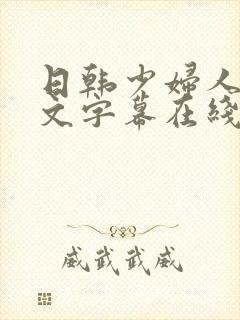 日韩少婦人
文字幕在綫
威武武威